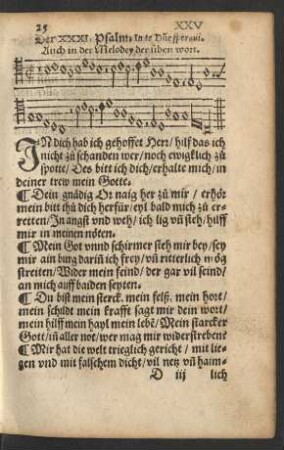 25 XXV
Der XXXI. Psalm. In te Dñe speraui.
Auch in der Melodey der siben wort.
IN dich hab ich gehoffet Herr/ hilf das ich
nicht zů schanden wer/ noch ewigklich zů
spotte/ Des bitt ich dich/ erhalte mich/ in
deiner trew mein Gotte.
¶ Dein gnädig Or naig her zů mir/ erhör
mein bitt thů dich herfür/ eyl bald mich zů er-
retten/ In angst vnd weh/ ich lig vñ steh/ hilff
mir in meinen nöten.
¶ Mein Got vnnd schirmer steh mir bey/ sey
mir ain burg dariñ ich frey/ vñ ritterlich mög
streiten/ Wider mein feind/ der gar vil seind/
an mich auff baiden seyten.
¶ Du bist mein sterck. mein felß. mein hort/
mein schildt mein krafft sagt mir dein wort/
mein hilff mein hayl mein lebẽ/ Mein starcker
Gott/ iñ aller not/ wer mag mir widerstrebẽ
¶ Mir hat die welt trieglich gericht/ mit lie-
gen vnd mit falschem dicht/ vil netz vñ haim-
D iij lich